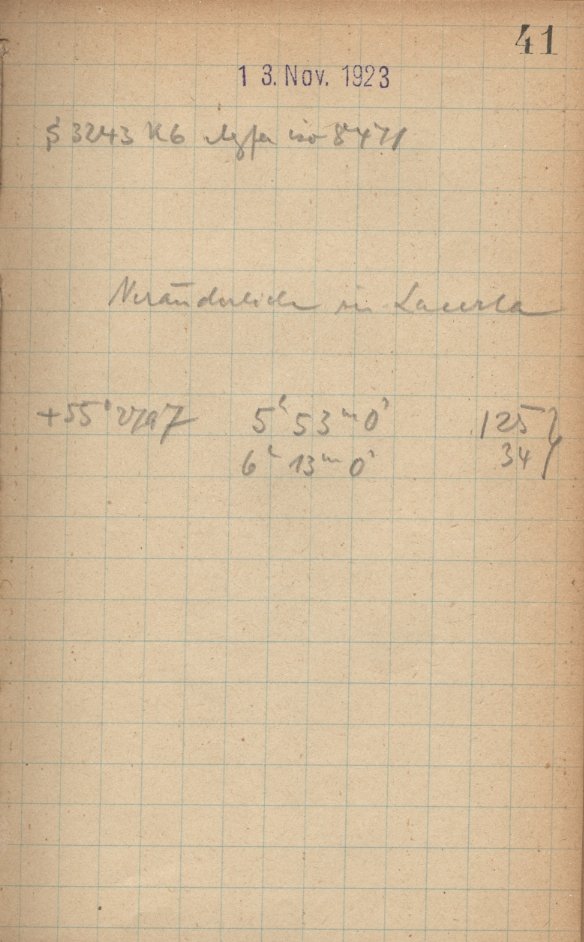 41
13. Nov. 1923
3243 K6 Agfa iso 8471
Veränderliche in Lacerta
+55° 2797 5h 53m 0s 125
6h 13m 0s 34